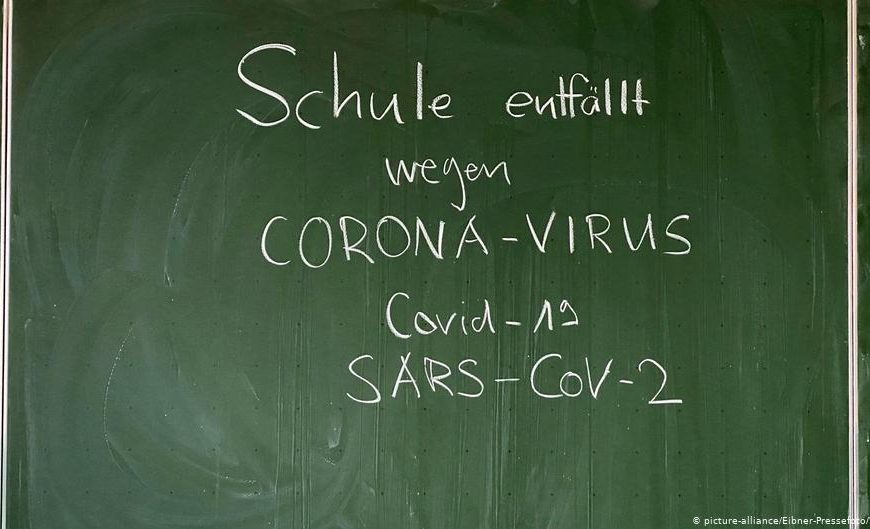 Schule entfällt
wegen
CORONA-VIRUS
Covid-19
SARS-CoV-2
© picture-alliance/Eibner-Pressefoto/